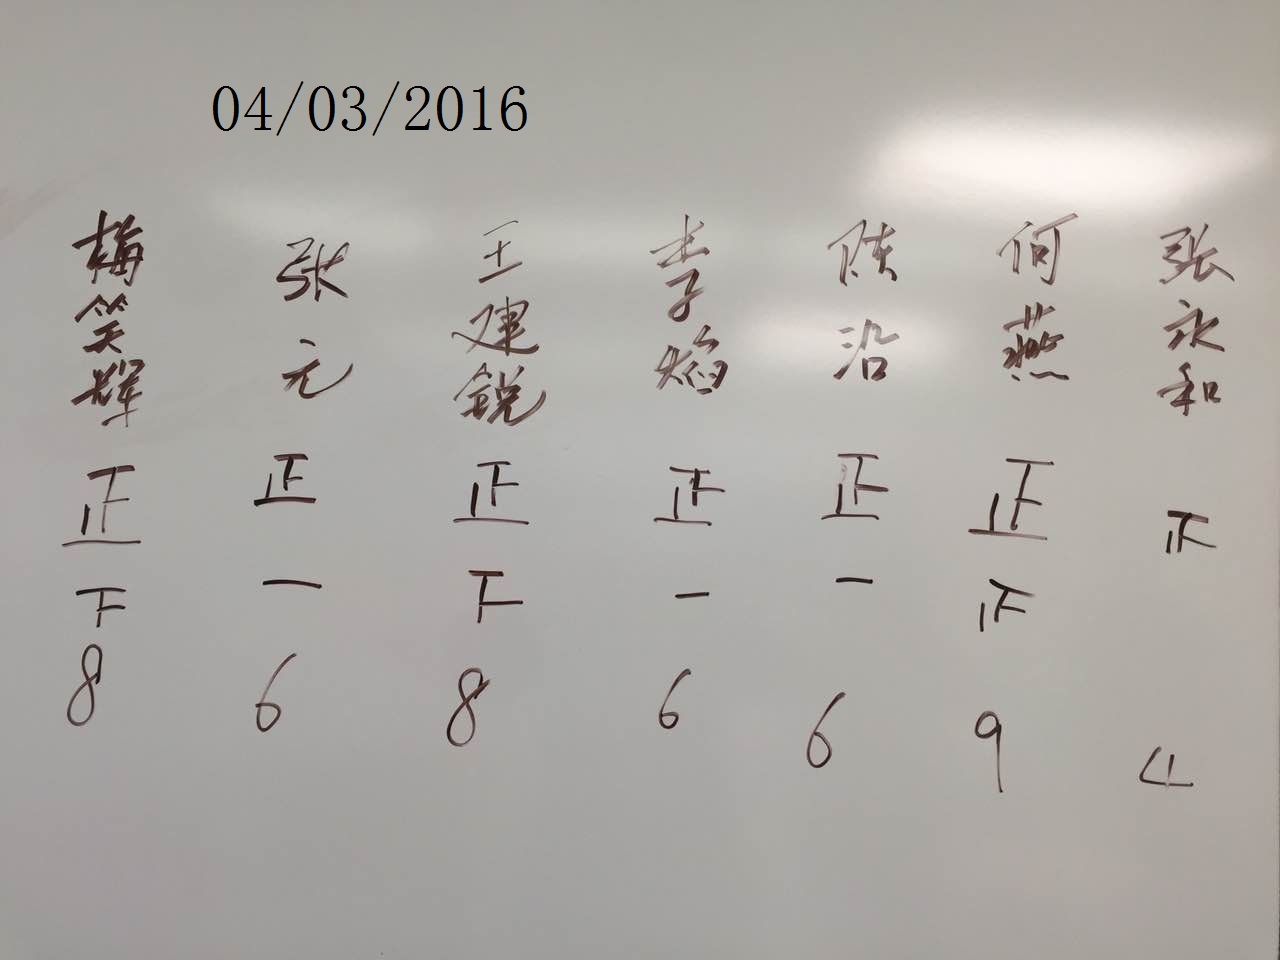 04/03/2016
梅笑辉 张元 王建锐 李焰 陈沿 何燕 张永和
正 正 正 正 正 正 正
下 一 下 一 一 正
8 6 8 6 6 9 4